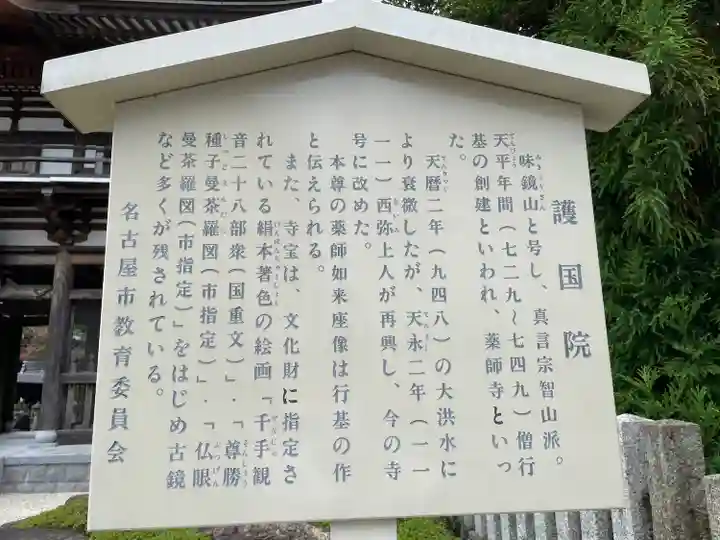 護国院
味鏡山と号し、真言宗智山派。
天平年間(七二九~七四九)僧行
基の創建といわれ、薬師寺といっ
た。
天暦二年(九四八)の大洪水に
より衰微したが、天永二年(一一
一一)西弥上人が再興し、今の寺
号に改めた。
本尊の薬師如来座像は行基の作
と伝えられる。
また、寺宝は、文化財に指定さ
れている絹本著色の絵画「千手観
音二十八部衆(国重文)」・「尊勝
種子曼荼羅図(市指定)」・「仏眼
曼荼羅図(市指定)」をはじめ古鏡
など多くが残されている。
名古屋市教育委員会